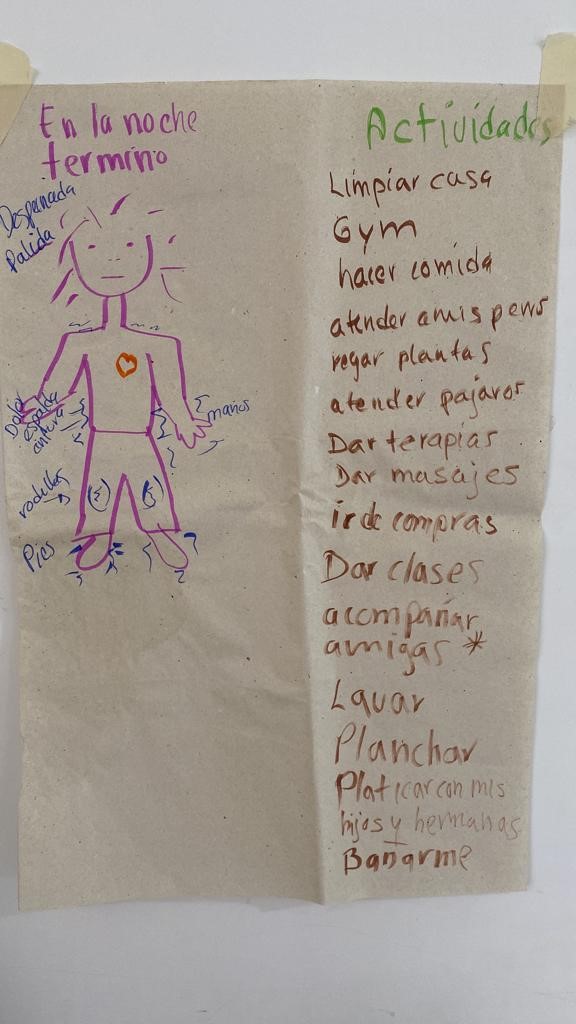 En la noche
termino
Despeinada
Palida
Dolor
espalda
cintura
manos
rodillas
Pies
Actividades
Limpiar casa
Gym
hacer comida
atender a mis perros
regar plantas
atender pajaros
Dar terapias
Dar masajes
ir de compras
Dar clases
acompañar
amigas *
Lavar
Planchar
Platicar con mis
hijos y hermanas
Bañarme